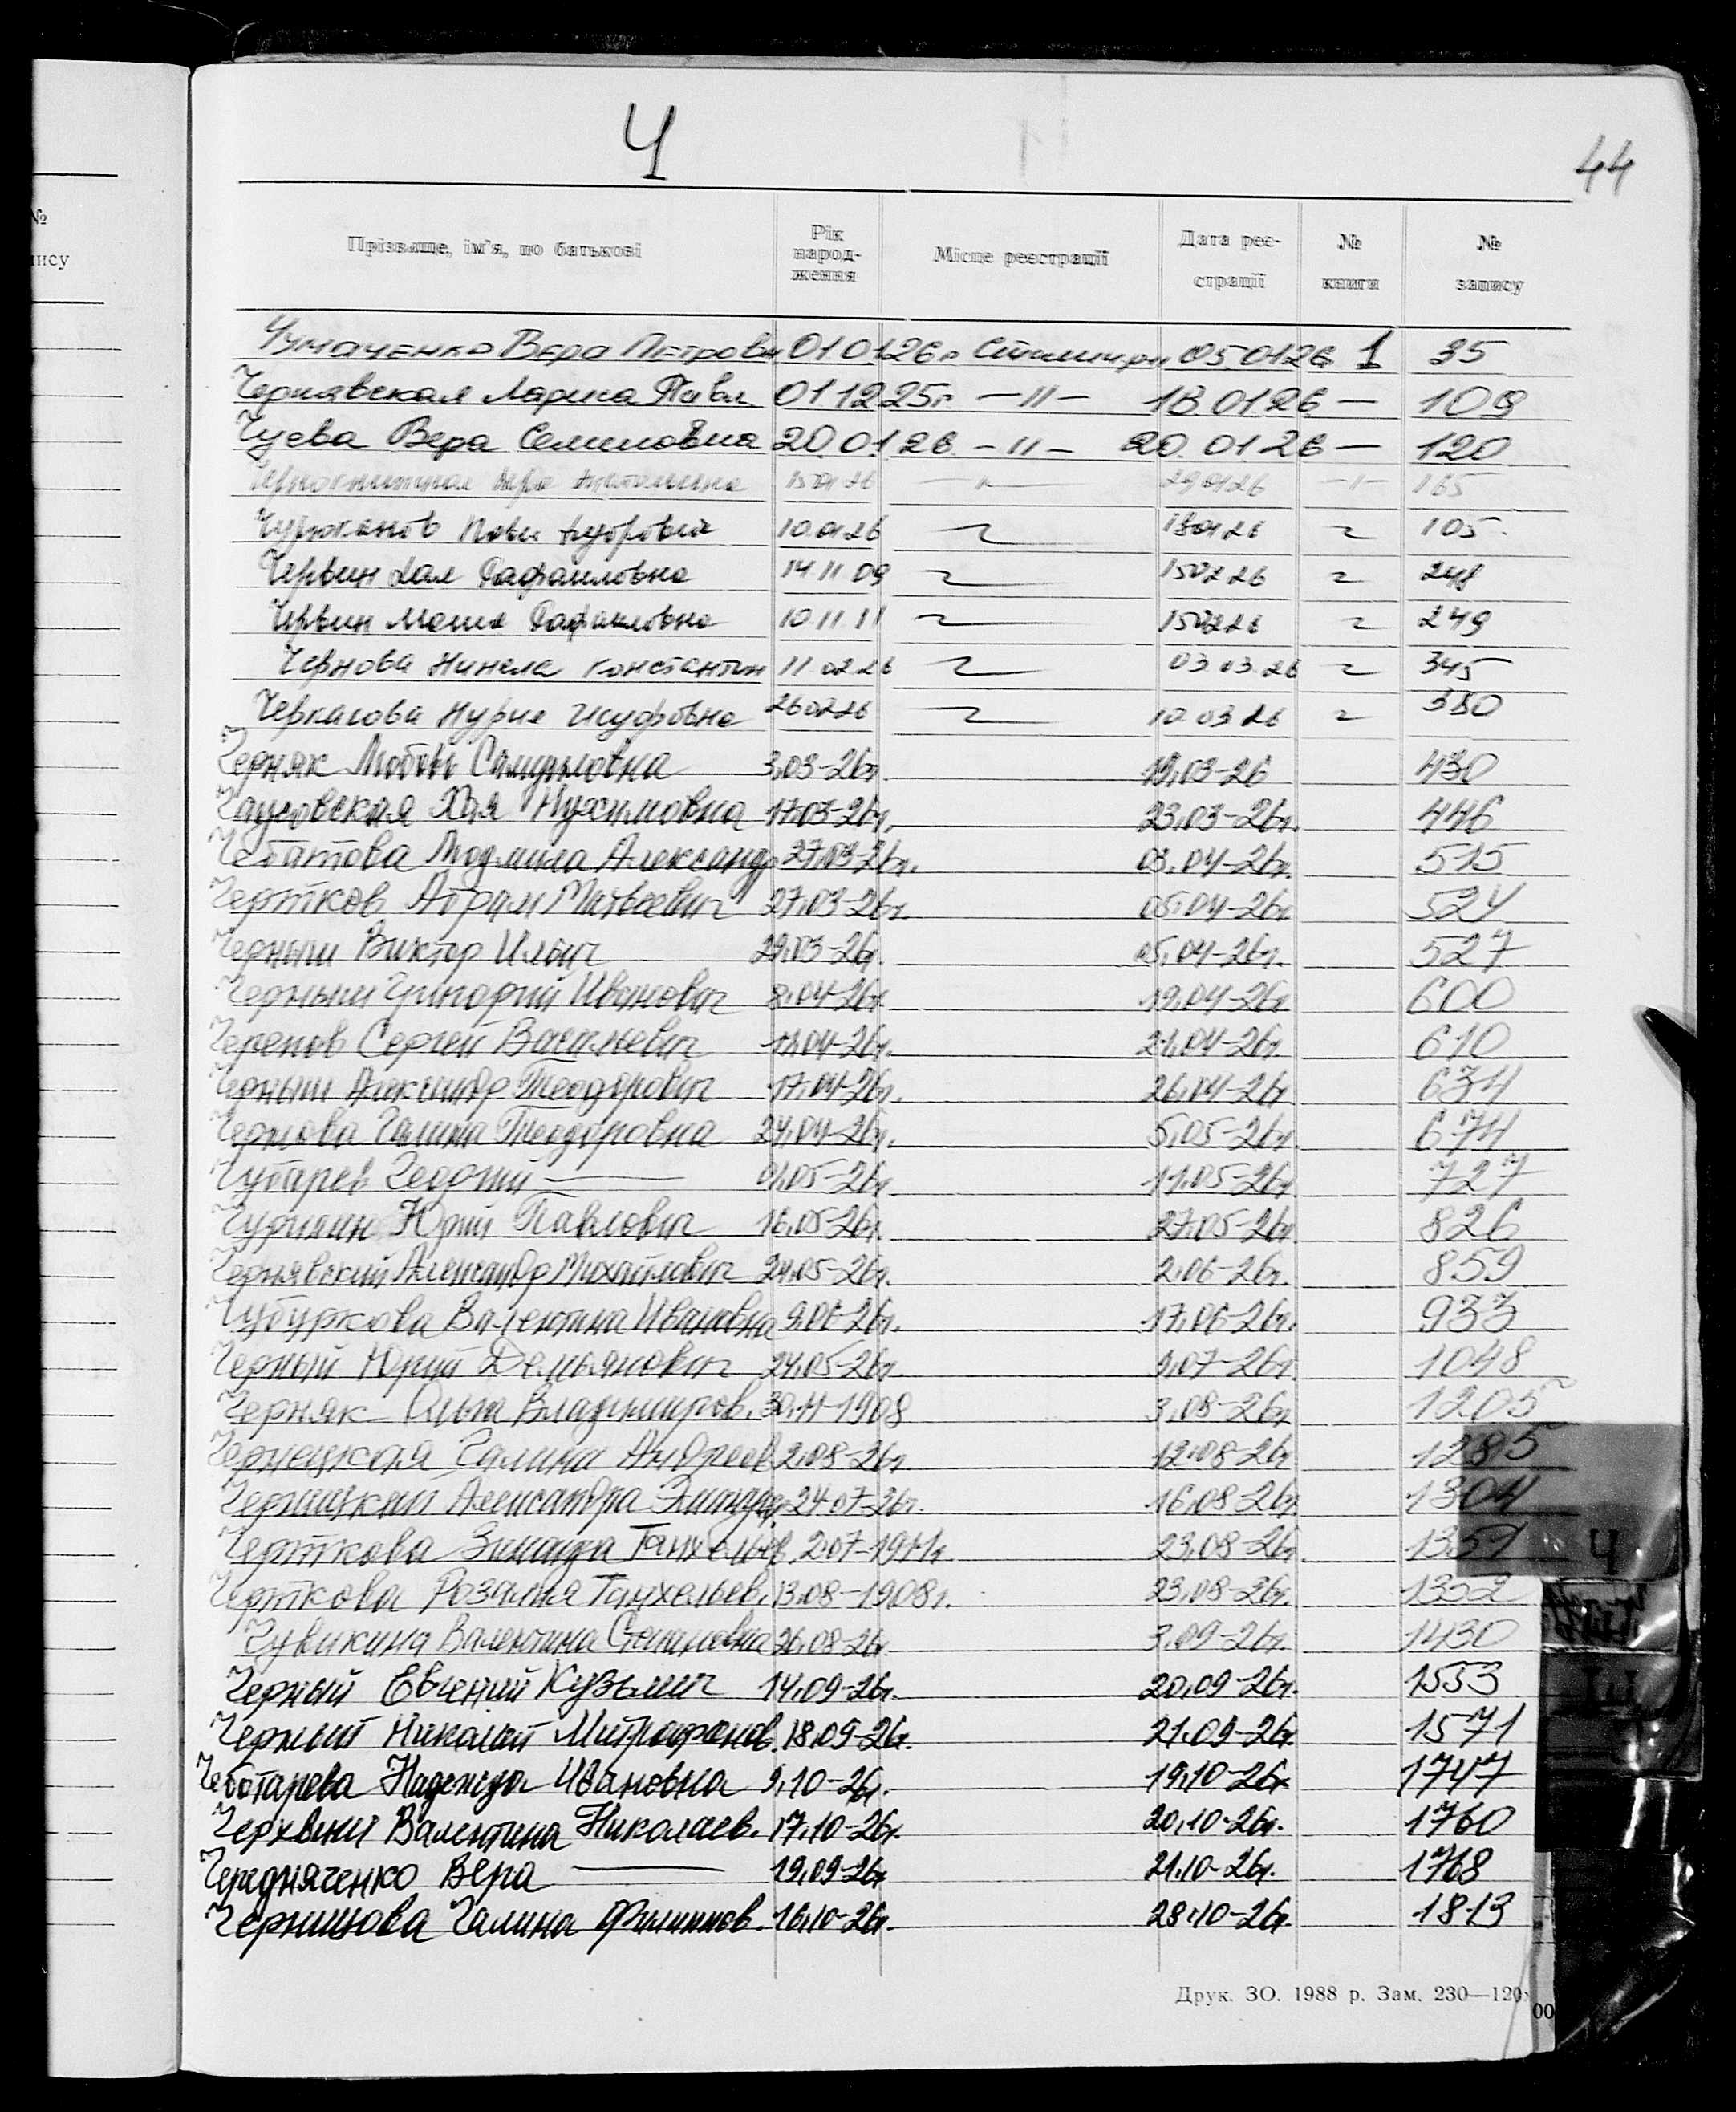 Ч
44
№
пису
Прізвище, ім'я, по батькові Рік народ-ження Місце реєстрації Дата реє-страції № книги № запису
Чумаченко Вера Петровн 01.01.26г 05.01.26 1 35
Чернявская Лариса Павл 01 12 25г. —〃— 18 01 26 — 109
Чуева Вера Семеновна 20.01.26. —〃— 20.01 26 — 120
29 01 26 —〃— 165
Павел 10.01.26 18 01 26 105.
Червин Рафаиловна 14 11 09 15 02 26 248
Червин Рафаиловна 10.11.11 15 02 26 249
Чернова Нинела Константин 11 02 26 03.03.26 345
Черкасова Нурия Исуфовна 26 02 26 10.03 26 380
Черняк Любовь Самуиловна 3,03-26г. 19,03-26 430
Чаусовская Хая Нухимовна 17.03-26г. 23,03-26г. 446
Людмила Александр 27,03-26г. 03.04-26г. 515
Чертков Абрам Матвеевич 27,03-26г. 05,04-26г. 524
Черный Виктор Ильич 29,03-26г. 05,04-26г. 527
Черный Григорий Иванович 8,04-26г. 19,04-26г. 600
Черепов Сергей Васильевич 21,04-26г. 610
Черный Александр Теодорович 17,04-26г. 26,04-26г 634
Чернова Галина Теодоровна 24,04-26г. 5,05-26г. 674
Чубарев Георгий — 01,05-26г. 11.05-26г 727
Юрий Павлович 16,05-26г. 27,05-26г 826
Чернявский Александр Михайлович 24,05-26г. 2,06-26г. 859
Чубуркова Валентина Ивановна 9,06-26г. 17,06-26г. 933
Черный Юрий Демьянович 24,05-26г. 9,07-26г. 1048
Черняк Ольга Владимиров. 30,11-1908 3,08-26г. 1205
Чернецкая Галина Андреев 2,08-26г. 12,08-26г 1285
Черницкий Александра 24.07-26г. 16,08-26г. 1304
Черткова Зинаида Танхельев. 2.07-1911г 23,08-26г. 1351
Черткова Розалия Танхельев. 13.08-1908г. 23,08-26г. 1352
Чувикина Валентина Степановна 26,08-26г. 3,09-26г. 1430
Черный Евгений Кузьмич 14,09-26г. 20,09-26г. 1553
Черный Николай Митрофанов. 18,09-26г. 21.09-26г. 1571
Чеботарева Надежда Ивановна 9,10-26г. 19,10-26г. 1747
Валентина Николаев. 17,10-26г. 20,10-26г. 1760
Чередняченко Вера — 19,09-26г. 21.10-26г. 1768
Галина Филиппов. 16,10-26г. 28,10-26г. 1813
Ч
Друк. ЗО. 1988 р. Зам. 230—120
00